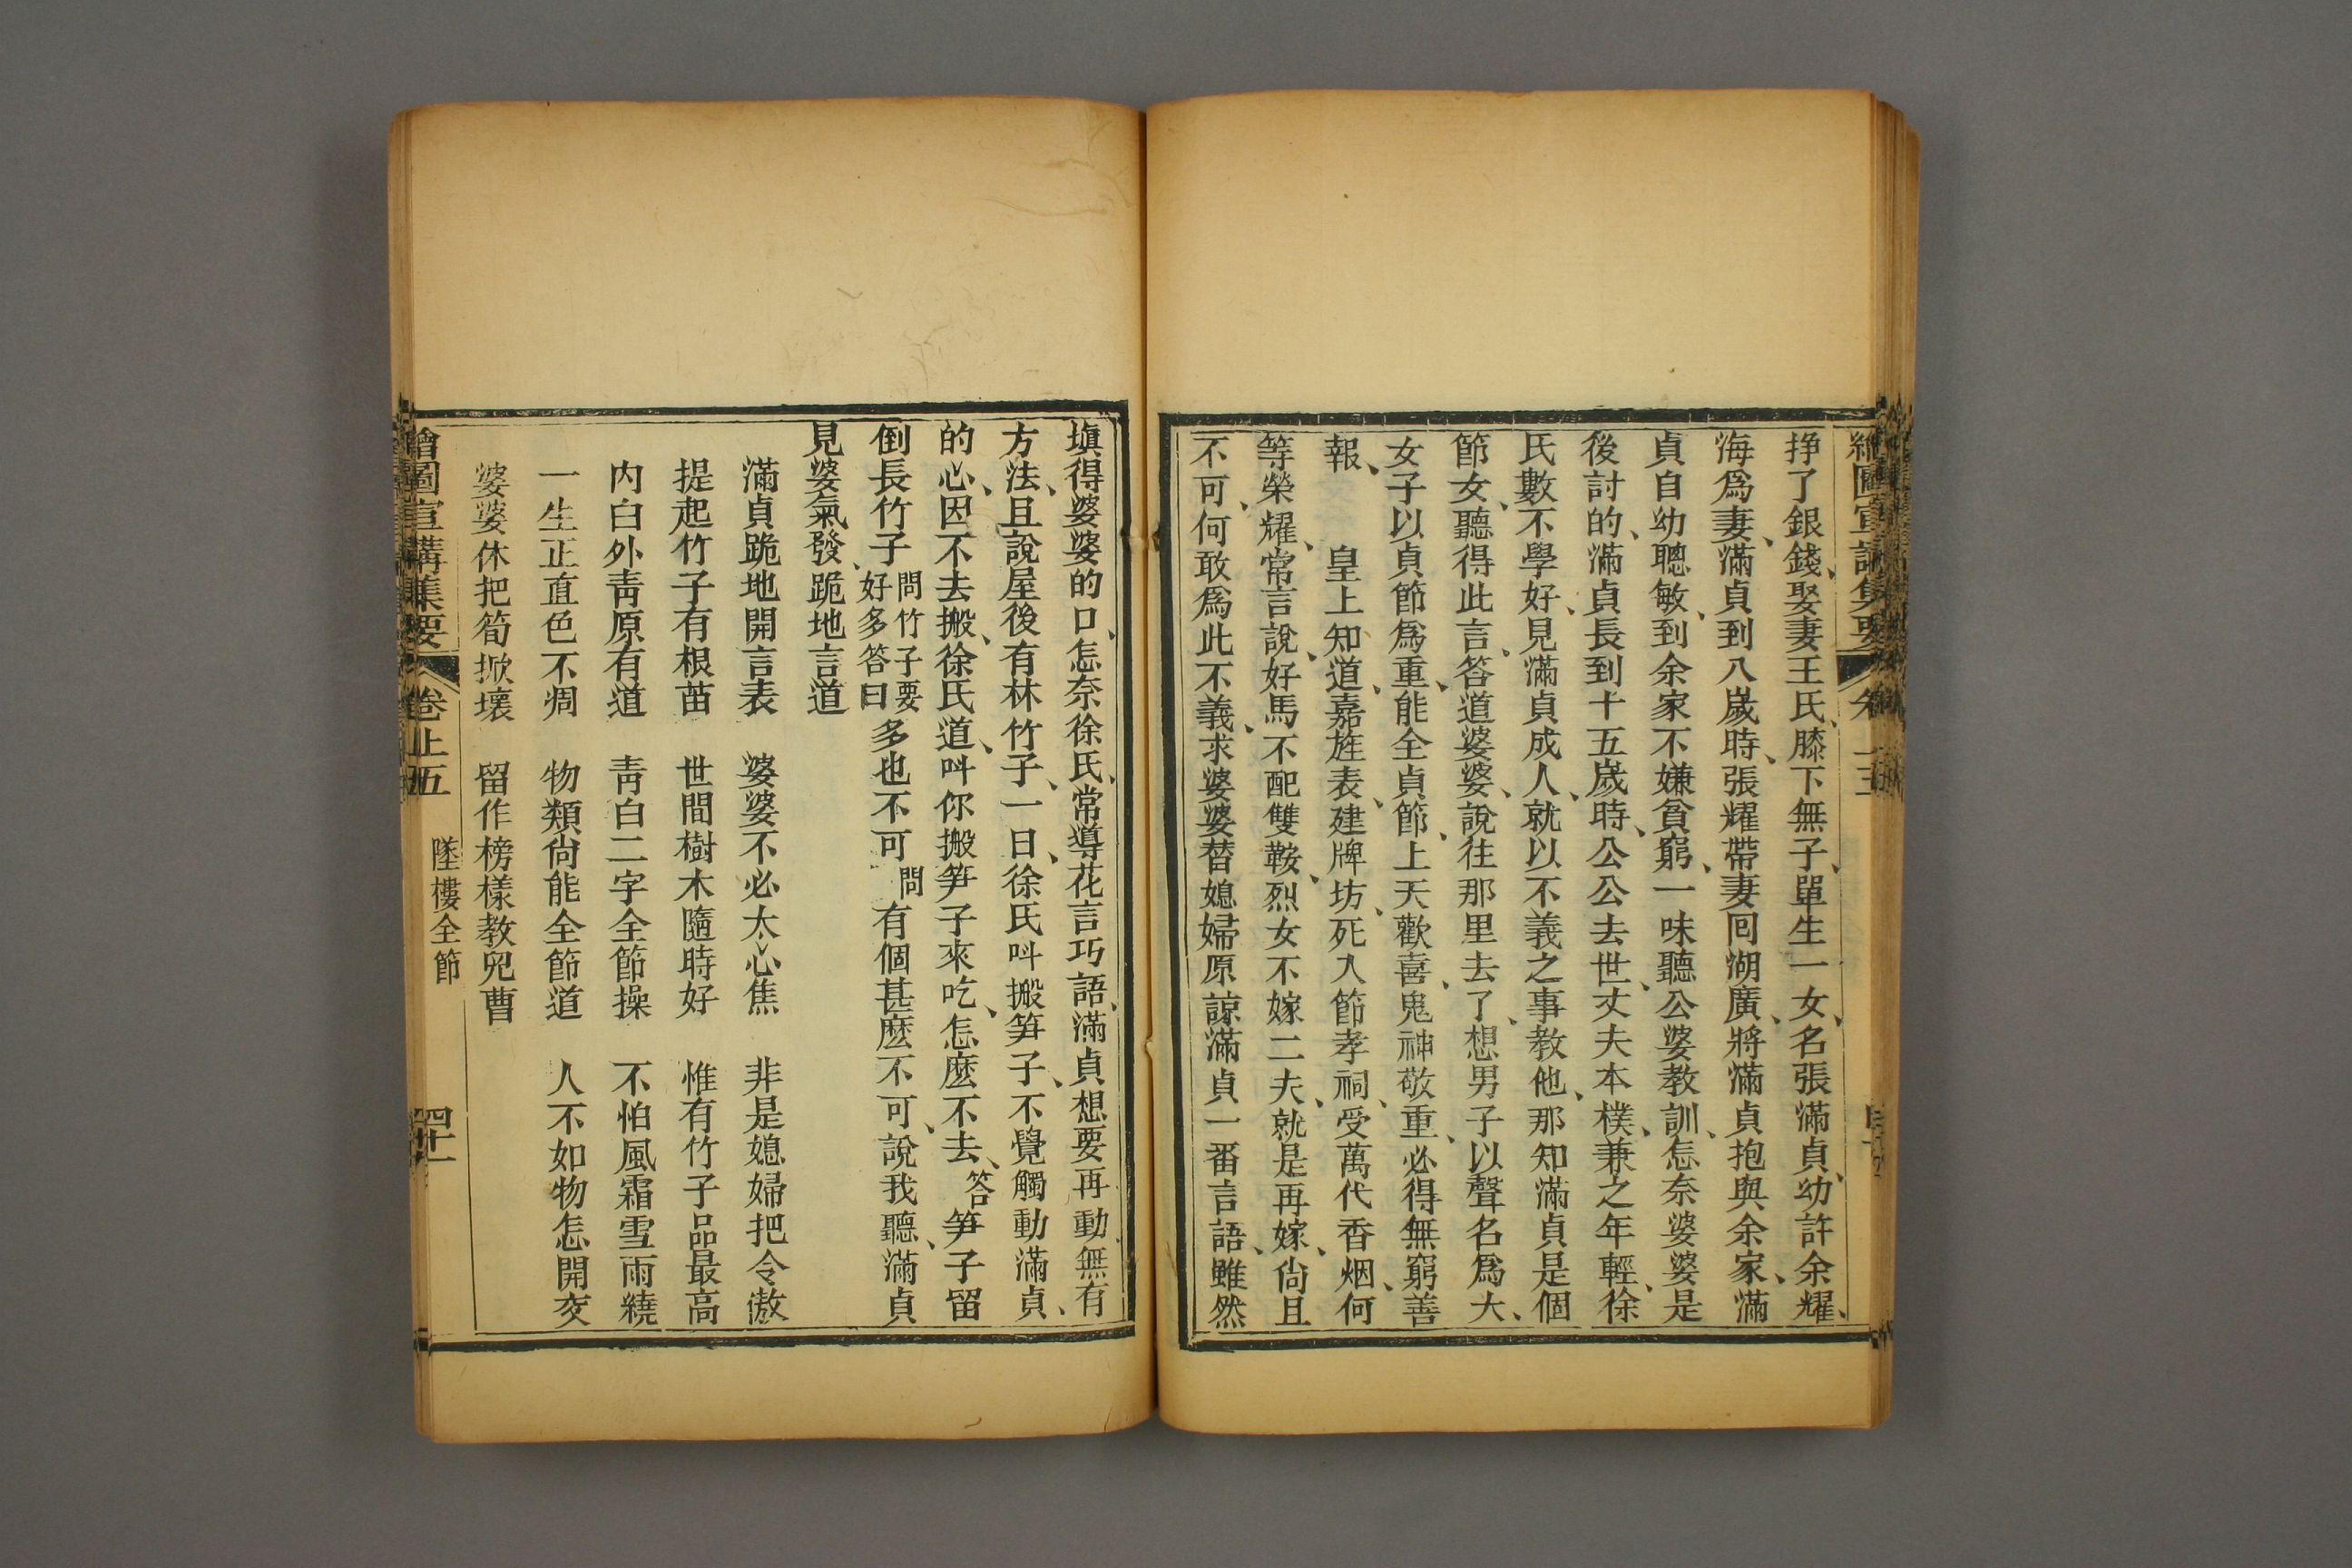 掙了銀錢、娶妻王氏、膝下無子、單生一女、名張滿貞、幼許余耀、
海爲妻、滿貞到八歲時、張耀帶妻回湖廣、將滿貞抱與余家、滿
貞自幼聰敏、到余家不嫌貧窮、一味聽公婆教訓、怎奈婆婆是
後討的、滿貞長到十五歲時、公公去世、丈夫本樸、兼之年輕、徐
氏數不學好、見滿貞成人、就以不義之事教他、那知滿貞是個
節女、聽得此言、答道婆婆、說往那里去了、想男子以聲名爲大、
女子以貞節爲重、能全貞節、上天歡喜、鬼神敬重、必得無窮善
報、
皇上知道、嘉旌表、建牌坊、死入節孝祠、受萬代香烟、何
等榮耀、常言說、好馬不配雙鞍、烈女不嫁二夫、就是再嫁、尙且
不可、何敢爲此不義、求婆婆替媳婦原諒滿貞一番言語、雖然
塡得婆婆的口、怎奈徐氏、常導花言巧語、滿貞想要再動、無有
方法、且說屋後有林竹子、一日、徐氏呌搬笋子、不覺觸動滿貞、
的心、因不去搬、徐氏道、呌你搬笋子來吃、怎麼不去、答笋子留
倒長竹子、問竹子要好多答曰多也不可問有個甚麽不可、說我聽、滿貞
見婆氣發、跪地言道
滿貞跪地開言表　婆婆不必太心焦　非是媳婦把令傲
提起竹子有根苗　世間樹木隨時好　惟有竹子品最高
內白外靑原有道　靑白二字全節操　不怕風霜雪雨繞
一生正直色不凋　物類尙能全節道　人不如物怎開交
婆婆休把筍掀壞　留作榜樣教兒曹
繪圖宣講集要　卷上五　墜樓全節　四十一